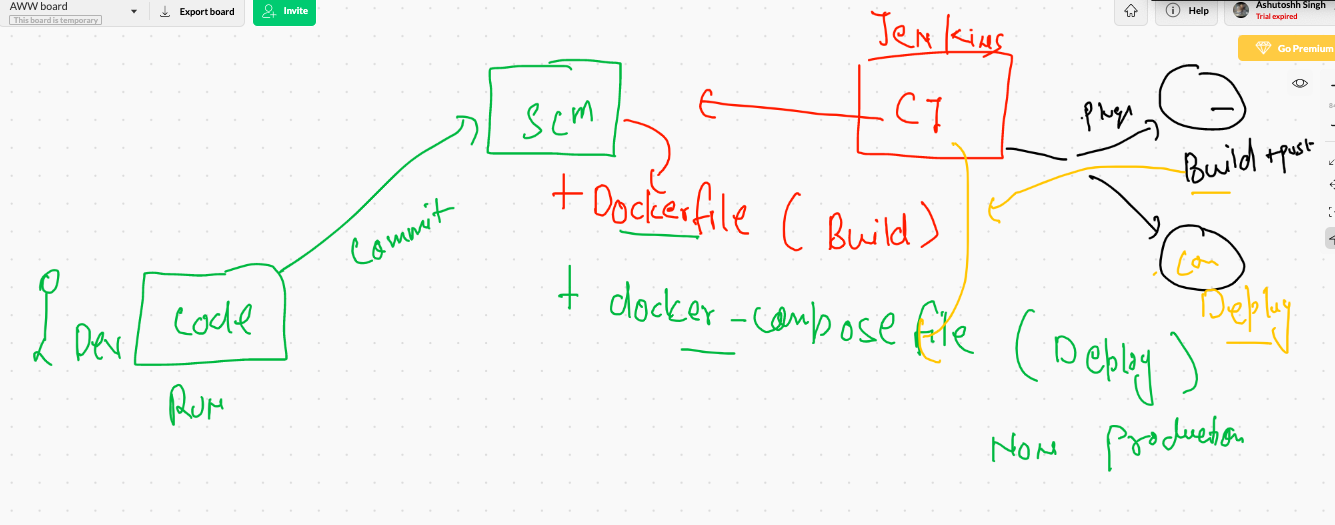 AWW board
This board is temporary
Export board
Invite
Help
Ashutoshh Singh
Trial expired
Go Premium
Jenkins
SCM
CI
Build + push
commit
+ Dockerfile (Build)
Dev
code
+ docker-compose file (Deploy)
Con
Deploy
Run
Non production